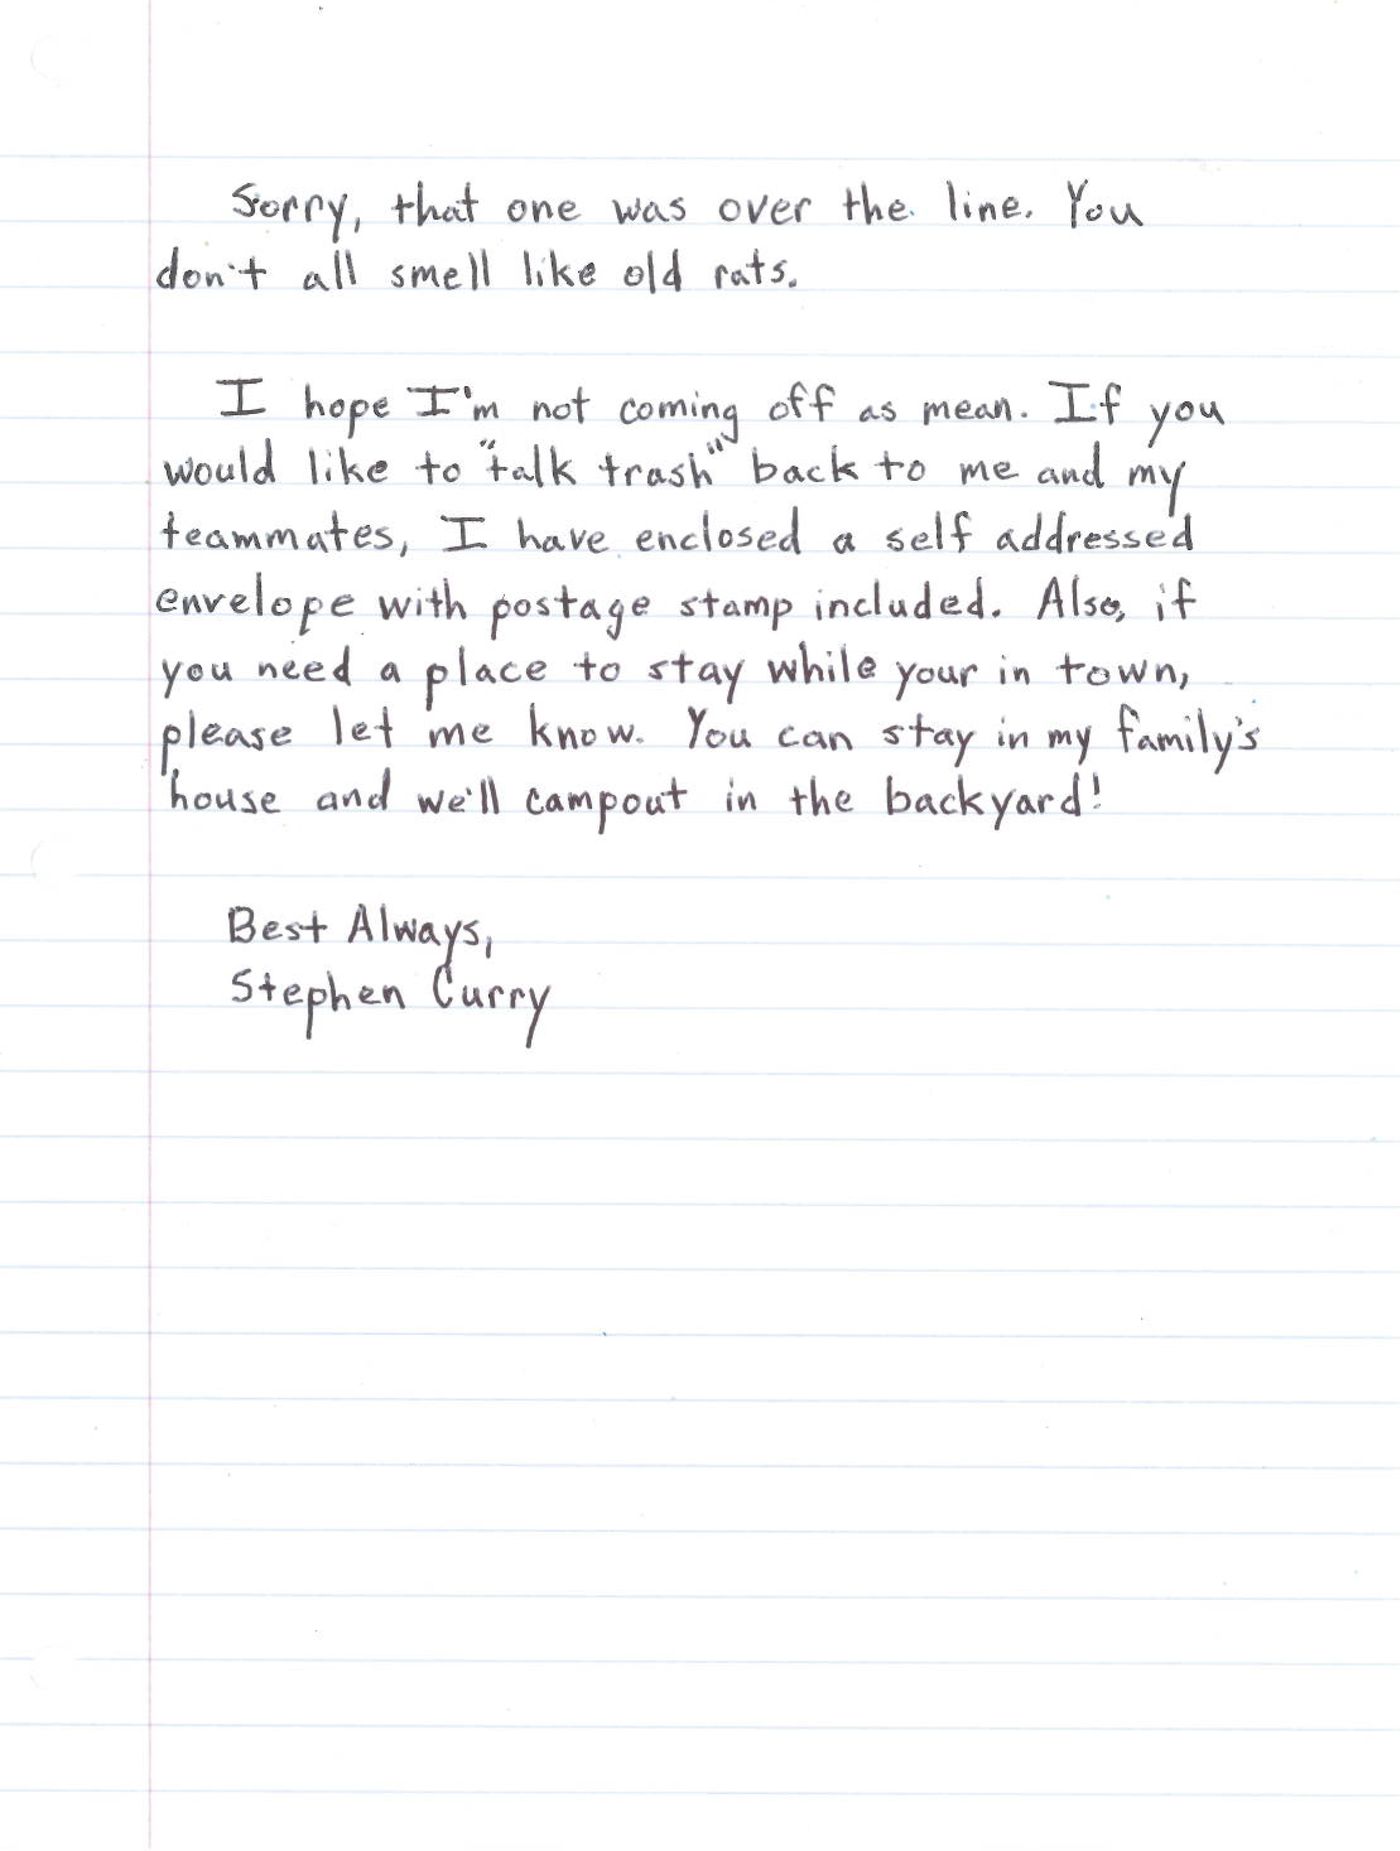 Sorry, that one was over the line. You
don't all smell like old rats.
I hope I'm not coming off as mean. If you
would like to "talk trash" back to me and my
teammates, I have enclosed a self addressed
envelope with postage stamp included. Also, if
you need a place to stay while your in town,
please let me know. You can stay in my family's
house and we'll campout in the backyard!
Best Always,
Stephen Curry